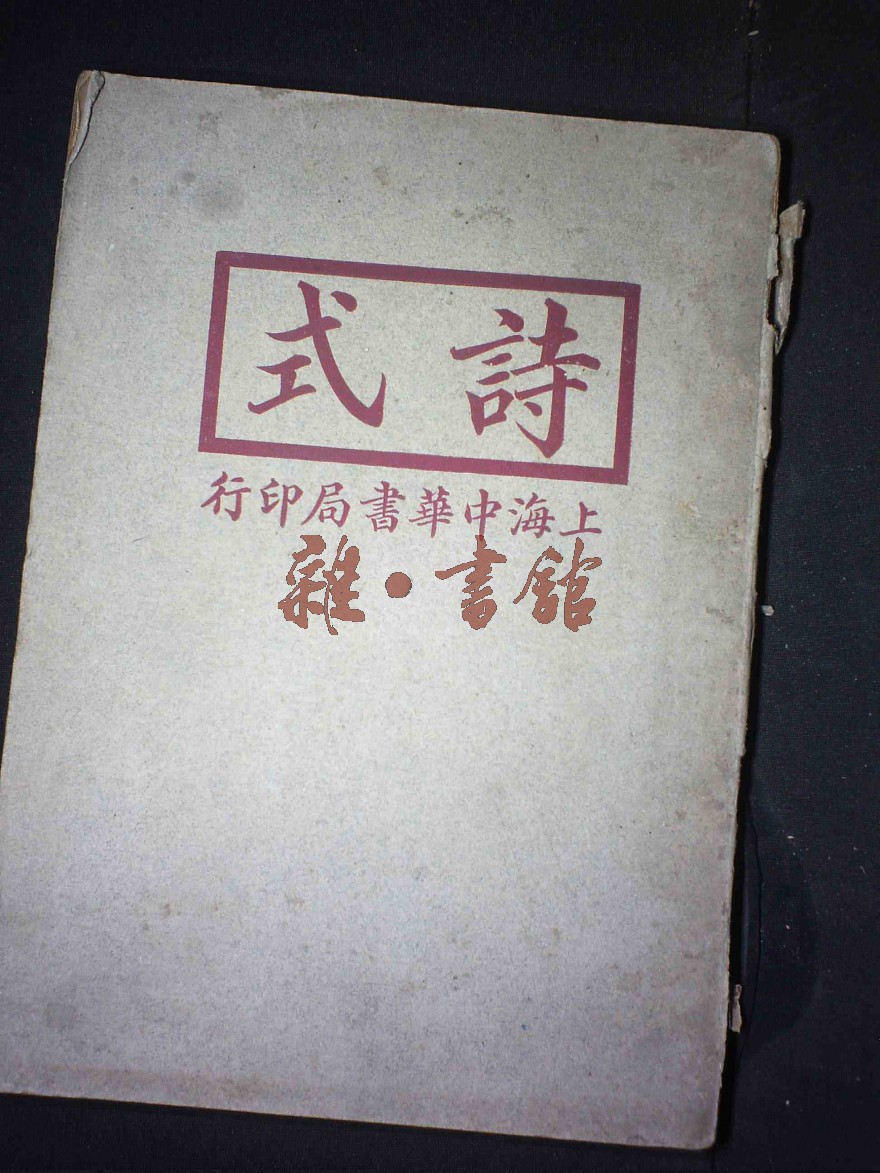 詩式
上海中華書局印行
雜·書館